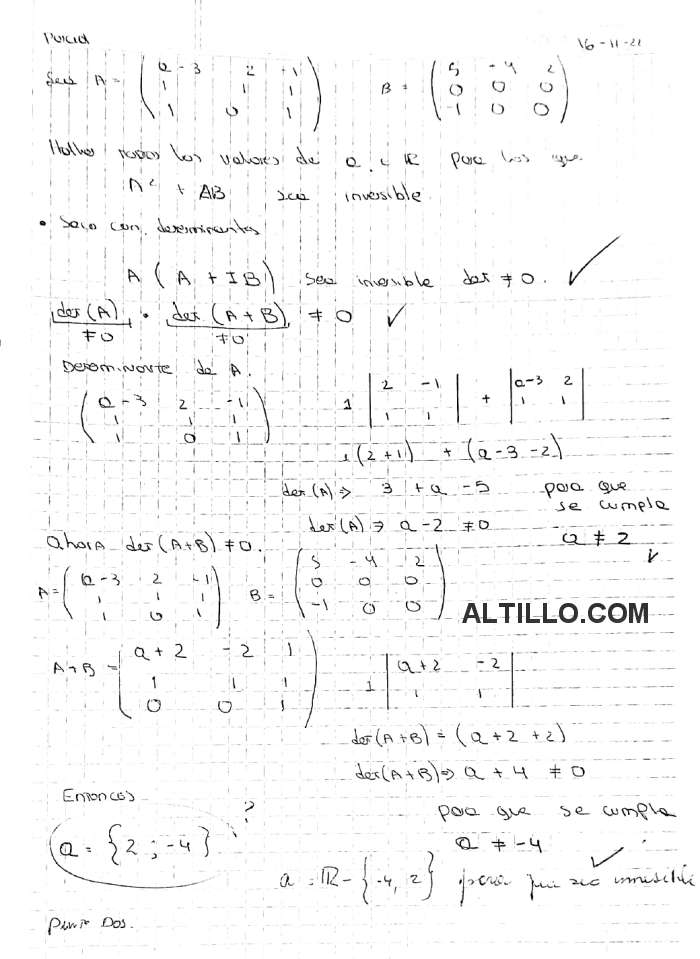 Parcial 16-11-21
Sea A = ( a-3 2 -1 B = ( 5 -4 2
1 1 1 0 0 0
1 0 1 ) -1 0 0 )
Halle todos los valores de a ∈ ℝ para los que
A² + AB sea inversible
• Sale con determinantes
A ( A + IB ) sea inversible det ≠ 0. ✓
det(A) . det (A+B) ≠ 0 ✓
≠0 ≠0
Determinante de A.
( a-3 2 -1 1 | 2 -1 | + | a-3 2 |
1 1 1 | 1 1 | | 1 1 |
1 0 1 )
1(2+1) + (a-3-2)
det(A) ⇒ 3 + a - 5 para que
se cumpla
det(A) ⇒ a-2 ≠ 0 a ≠ 2 ✓
Ahora det(A+B) ≠ 0.
A = ( a-3 2 -1 B = ( 5 -4 2
1 1 1 0 0 0
1 0 1 ) -1 0 0 )
ALTILLO.COM
A+B = ( a+2 -2 1 1 | a+2 -2 |
1 1 1 | 1 1 |
0 0 1 )
det(A+B) = (a+2+2)
det(A+B) ⇒ a + 4 ≠ 0
Entonces para que se cumpla
a = {2 ; -4} ? a ≠ -4
a = ℝ - {-4, 2} para que sea inversible ✓
Punto Dos.